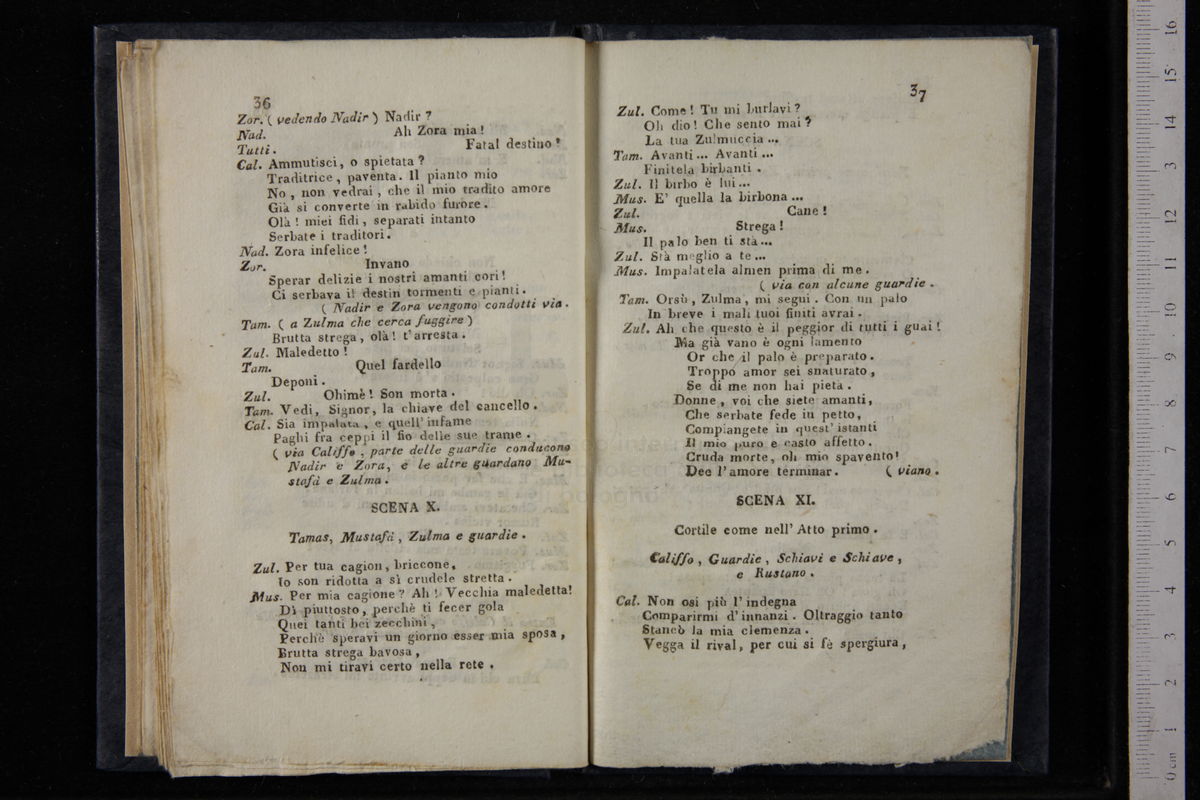 36
Zor. ( vedendo Nadir ) Nadir ?
Nad. Ah Zora mia !
Tutti. Fatal destino !
Cal. Ammutisci, o spietata ?
Traditrice, paventa. Il pianto mio
No, non vedrai, che il mio tradito amore
Già si converte in rabido furore.
Olà ! miei fidi, separati intanto
Serbate i traditori.
Nad. Zora infelice !
Zor. Invano
Sperar delizie i nostri amanti cori !
Ci serbava il destin tormenti e pianti.
( Nadir e Zora vengono condotti via.
Tam. ( a Zulma che cerca fuggire )
Brutta strega, olà ! t'arresta.
Zul. Maledetto !
Tam. Quel fardello
Deponi.
Zul. Ohimè ! Son morta.
Tam. Vedi, Signor, la chiave del cancello.
Cal. Sia impalata, e quell'infame
Paghi fra ceppi il fio delle sue trame.
( via Califfo, parte delle guardie conducono
Nadir e Zora, e le altre guardano Mu-
stafà e Zulma.
SCENA X.
Tamas, Mustafà, Zulma e guardie.
Zul. Per tua cagion, briccone,
Io son ridotta a sì crudele stretta.
Mus. Per mia cagione ? Ah ! Vecchia maledetta !
Dì piuttosto, perchè ti fecer gola
Quei tanti bei zecchini,
Perchè speravi un giorno esser mia sposa,
Brutta strega bavosa,
Non mi tiravi certo nella rete.
37
Zul. Come ! Tu mi burlavi ?
Oh dio ! Che sento mai ?
La tua Zulmuccia ...
Tam. Avanti ... Avanti ...
Finitela birbanti.
Zul. Il birbo è lui ...
Mus. E' quella la birbona ...
Zul. Cane !
Mus. Strega !
Il palo ben ti stà ...
Zul. Stà meglio a te ...
Mus. Impalatela almen prima di me.
( via con alcune guardie.
Tam. Orsù, Zulma, mi segui. Con un palo
In breve i mali tuoi finiti avrai.
Zul. Ah che questo è il peggior di tutti i guai !
Ma già vano è ogni lamento
Or che il palo è preparato.
Troppo amor sei snaturato,
Se di me non hai pietà.
Donne, voi che siete amanti,
Che serbate fede in petto,
Compiangete in quest'istanti
Il mio puro e casto affetto.
Cruda morte, oh mio spavento !
Dee l'amore terminar. ( viano.
SCENA XI.
Cortile come nell'Atto primo.
Califfo, Guardie, Schiavi e Schiave,
e Rustano.
Cal. Non osi più l'indegna
Comparirmi d'innanzi. Oltraggio tanto
Stancò la mia clemenza.
Vegga il rival, per cui si fè spergiura,
0 cm 1 2 3 4 5 6 7 8 9 10 11 12 13 14 15 16